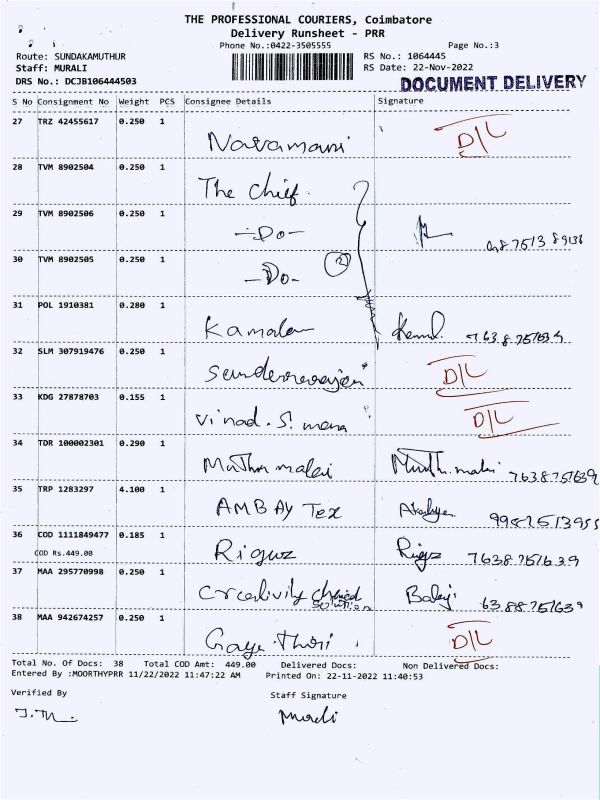 THE PROFESSIONAL COURIERS, Coimbatore
Delivery Runsheet - PRR
Phone No.:0422-3505555 Page No.:3
Route: SUNDAKAMUTHUR RS No.: 1064445
Staff: MURALI RS Date: 22-Nov-2022
DRS No.: DCJB106444503 DOCUMENT DELIVERY
S No Consignment No Weight PCS Consignee Details Signature
27 TRZ 42455617 0.250 1
Navamani D/L
28 TVM 8902504 0.250 1
The Chief.
29 TVM 8902506 0.250 1
-Do-
30 TVM 8902505 0.250 1
-Do- 2
31 POL 1910381 0.280 1
Kamalam
32 SLM 307919476 0.250 1
D/L
33 KDG 27878703 0.155 1
Vinod. S. D/L
34 TDR 100002301 0.290 1
Muthu malai 7638751639
35 TRP 1283297 4.100 1
AMBAY Tex
36 COD 1111849477 0.185 1
COD Rs.449.00
7638751639
37 MAA 295770998 0.250 1
Creativity Balaji 6388751639
38 MAA 942674257 0.250 1
Gayathiri D/L
Total No. Of Docs: 38 Total COD Amt: 449.00 Delivered Docs: Non Delivered Docs:
Entered By :MOORTHYPRR 11/22/2022 11:47:22 AM Printed On: 22-11-2022 11:40:53
Verified By Staff Signature
Murali